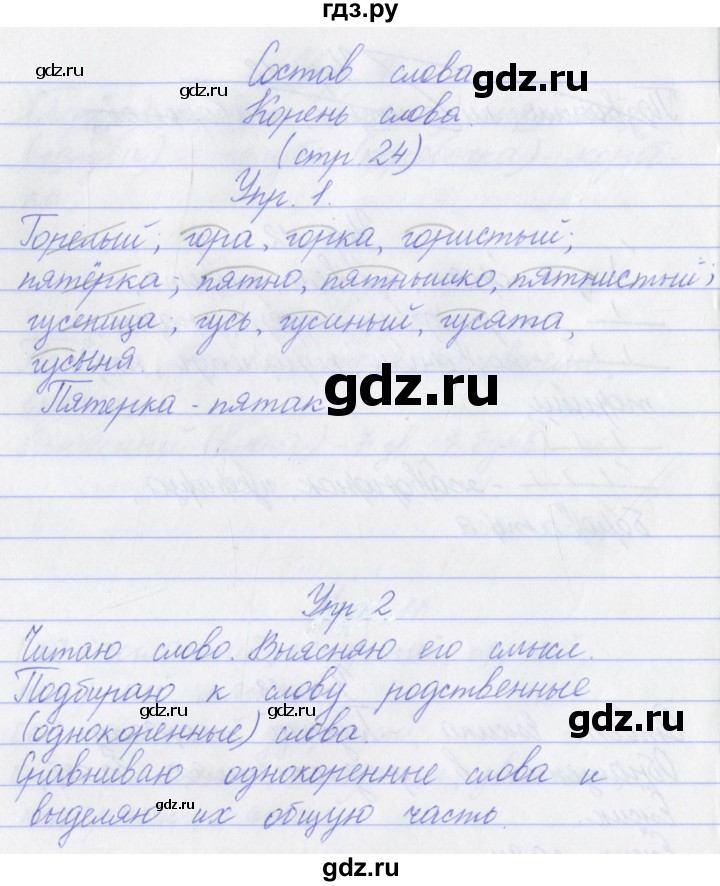 гдз.ру
Состав слова
Корень слова.
(стр 24)
Упр. 1.
Горелый; гора, горка, гористый;
пятёрка; пятно, пятнышко, пятнистый;
гусеница; гусь, гусиный, гусята,
гусыня.
Пятерка - пятак
Упр 2
Читаю слово. Выясняю его смысл.
Подбираю к слову родственные
(однокоренные) слова.
Сравниваю однокоренные слова и
выделяю их общую часть.
gdz.ru
gdz.ru
gdz.ru
gdz.ru
gdz.ru
gdz.ru
gdz.ru
gdz.ru
gdz.ru